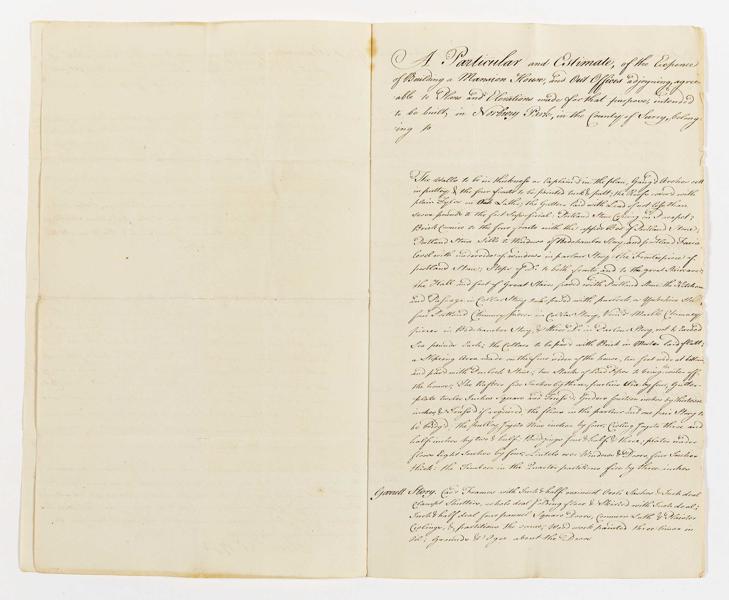 A Particular and Estimate, of the Expence
of Building a Mansion House, and Out Offices adjoyning, agree
able to Plans and Elevations made for that purpose, intended
to be built, in Norbury Park, in the County of Surry, belong
ing to
The Walls to be in thickness as Explained in the plan, Gaug'd Arches sett
in putty & the four fronts to be pointed tuck & patt; the Roofs cover'd with
plain Tyles in Oak Laths; the Gutters laid with Lead of not less than
seven pounds to the foot superficial; Portland Stone Coping on Parapet;
Brick Corners to the four fronts with the upper Bed of Portland Stone;
Portland Stone Sills to Windows of Bedchamber Story, and portland Facia
Level with underside of windows in parlour Story; One Frontispiece of
portland Stone; Steps of Do. to both fronts, and to the great Staircase;
the Hall and foot of Great Stairs paved with Portland Stone the Kitchen
and Passage in Cellar Story paved with
four Portland Chimney pieces in Cellar Story, Marble Chimney
pieces in Bedchamber Story, & three Do. in Parlour Story, not to exceed
Six pounds Each; the Cellars to be paved with Brick in laid flatt;
a Sloping Area made on the four sides of the house, ten feet wide at bottom
and paved with Purbeck Stone; ten Stacks of Lead Pipes to bring water off
the house; The Rafters five Inches by three, purlins Six by four, Gutter
plate twelve Inches Square and Truss'd; Girders fourteen inches by thirteen
inches & Truss'd if required, the floors in the parlour and one pair Story to
be bridg'd, the Bridging Joysts Nine inches by four, Cieling Joysts three and
half inches by two & half. Bridgings four & half & three; plates under
floors Eight Inches by four, Lintels over Windows & Doors four Inches
thick: the Timbers in the Quarter partitions five by three inches
Garrett Story. Case Frames with Inch & half Ovolo Sashes & Inch deal
Clampt Shutters, whole deal folding floor & Skirted with Inch deal;
Inch & half deal four pannel Square Doors, Common Lath & Plaister
Cielings, & partitions the same; Wood work painted three times in
oil; Grounds & Ogee about the Doors